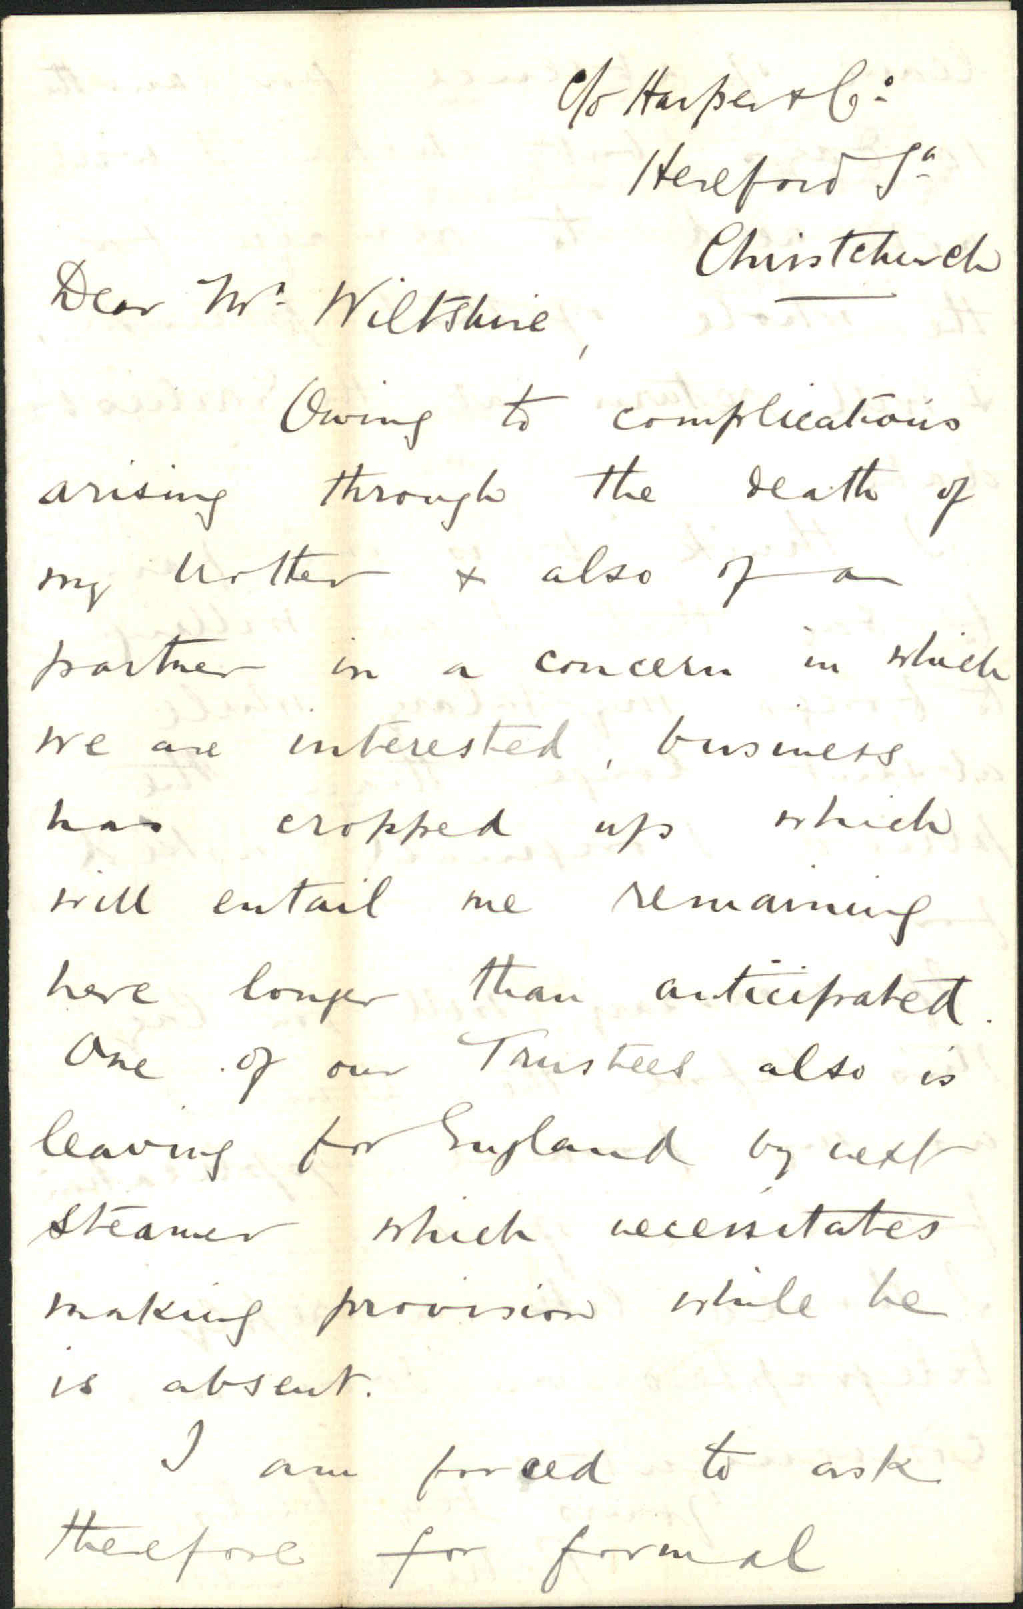 C/o Harper & Co.
Hereford St.
Christchurch
Dear Mr. Wiltshire,
Owing to complications
arising through the death of
my Mother & also of a
partner in a concern in which
we are interested, business
has cropped up which
will entail me remaining
here longer than anticipated.
One of our Trustees also is
leaving for England by next
steamer which necessitates
making provision while he
is absent.
I am forced to ask
therefore for formal